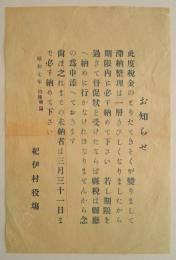 お知らせ
此度税金のとりたてきそくが變りまして
滞納整理は一層きびしくなりましたから
期限内に必す納めて下さい 若し期限を
過ぎて督促狀を受けたならば縣税は縣廳
へ納めに行かなければなりませんから念
の爲申添へておきます
尚ほ之れまでの未納者は三月三十一日ま
でに必す納めて下さい
昭和七年
紀伊村役塲